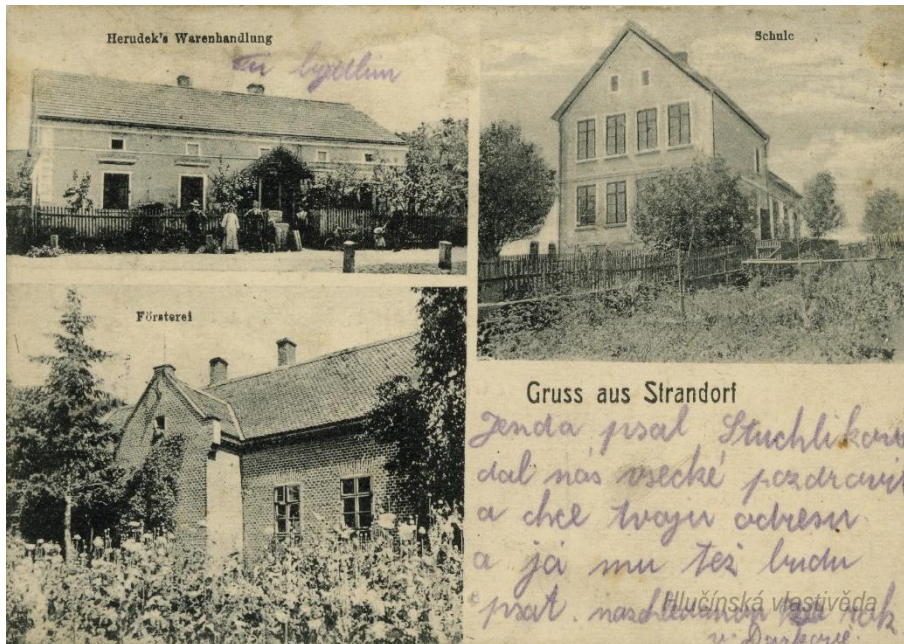 Herudek's Warenhandlung
Tu bydlim
Schule
Försterei
Gruss aus Strandorf
Jenda psal Stuchlikovi
dal nás vsecké pozdravit
a chce tvoju odresu
a já mu též budu
psat. nashledanou rok
Hlučínská vlastivěda
v